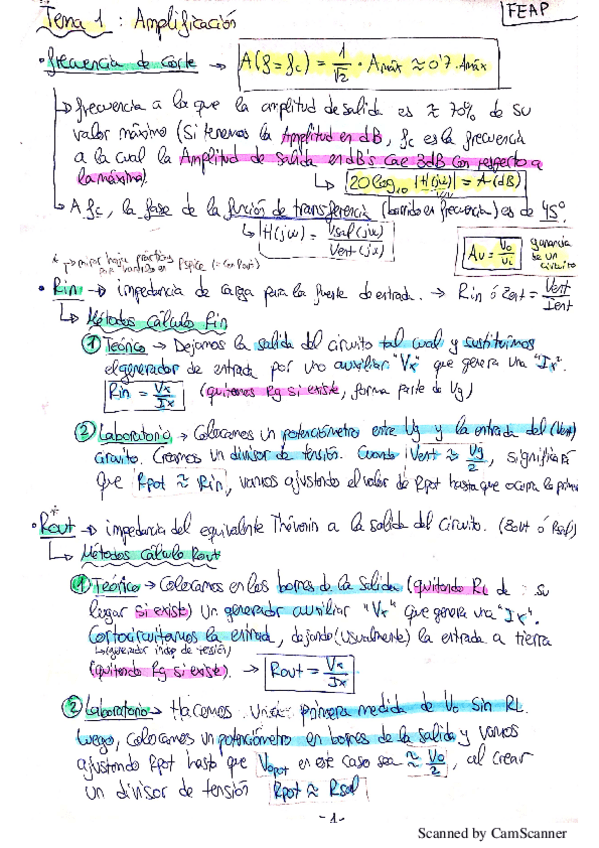 FEAP
Tema 1: Amplificación
• frecuencia de corte → A(f=fc) = 1/√2 · Amáx ≈ 0'7 · Amáx
↳ frecuencia a la que la amplitud de salida es ≈ 70% de su
valor máximo (Si tenemos la Amplitud en dB, fc es la frecuencia
a la cual la Amplitud de salida en dBs cae 3dB con respecto a
la máxima). ↳ 20 log10 |H(jω)| = A(dB)
↳ A fc, la fase de la función de transferencia (barrido en frecuencia) es de 45º.
↳ |H(jω)| = Vsal(jω)/Vent(jω)
Av = Vo/Vi ganancia de un circuito
* mirar hojas prácticas
• Rin → impedancia de carga para la fuente de entrada. → Rin ó Zent = Vent/Ient
↳ Métodos cálculo Rin
① Teórico → Dejamos la salida del circuito tal cual y sustituimos
el generador de entrada por uno auxiliar "Vx" que genera una "Ix".
Rin = Vx/Ix (quitamos Rg si existe, forma parte de Vg)
② Laboratorio → Colocamos un potenciómetro entre Vg y la entrada del (Vent)
circuito. Creamos un divisor de tensión. Cuando Vent ≈ Vg/2, significará
que Rpot ≈ Rin, vamos ajustando el valor de Rpot hasta que ocurra lo
• Rout → impedancia del equivalente Thévenin a la salida del circuito. (Zout ó Rsal)
↳ Métodos Cálculo Rout
① Teórico → Colocamos en los bornes de la salida (quitando RL de su
lugar si existe) un generador auxiliar "Vx" que genera una "Ix".
Cortocircuitamos la entrada, dejando (usualmente) la entrada a tierra
↳ (generador indep de tensión)
(quitando Rg si existe). → Rout = Vx/Ix
② Laboratorio → Hacemos una primera medida de Vo sin RL.
Luego, colocamos un potenciómetro en bornes de la salida y vamos
ajustando Rpot hasta que Vopot en este caso sea ≈ Vo/2, al crear
un divisor de tensión Rpot ≈ Rsal
-1-
Scanned by CamScanner